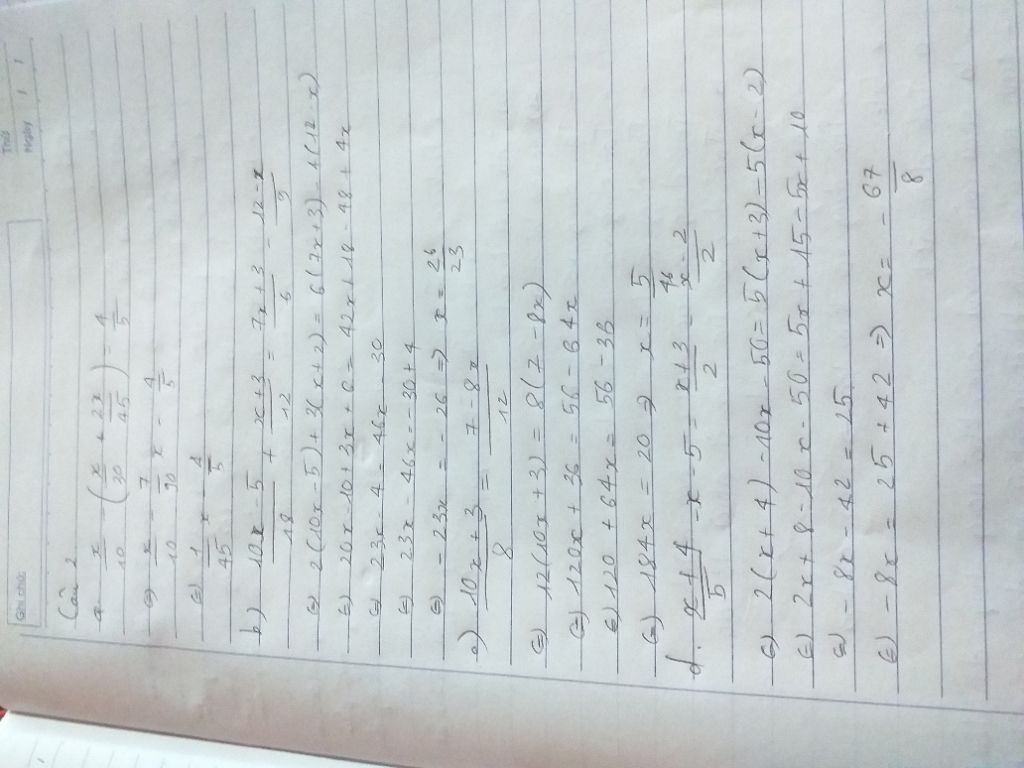 Ghi chú
Thứ
Ngày / /
Câu 2
a. x/10 - (x/30 + 2x/45) = 4/5
⇔ x/10 - 7/90 x = 4/5
⇔ 1/45 x = 4/5
b) 10x-5/18 + x+3/12 = 7x+3/6 - 12-x/9
⇔ 2(10x-5) + 3(x+2) = 6(7x+3) - 4(12-x)
⇔ 20x-10+3x+6 = 42x+18-48+4x
⇔ 23x-4 = 46x-30
⇔ 23x-46x = -30+4
⇔ -23x = -26 ⇒ x = 26/23
c) 10x+3/8 = 7-8x/12
⇔ 12(10x+3) = 8(7-8x)
⇔ 120x+36 = 56-64x
⇔ 120+64x = 56-36
⇔ 184x = 20 ⇒ x = 5/46
d. x+4/5 - x-5 = x+3/2 - x-2/2
⇔ 2(x+4)-10x-50 = 5(x+3)-5(x-2)
⇔ 2x+8-10x-50 = 5x+15-5x+10
⇔ -8x-42 = 25
⇔ -8x = 25+42 ⇒ x = -67/8